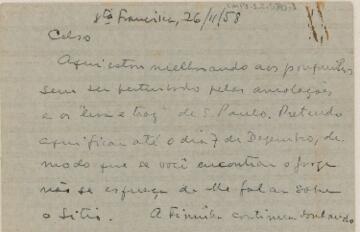 Sta Francisca, 26/11/58
Celso
Aqui estou melhorando aos pouquinhos
sem ser perturbado pelas amolações
e os "leva e traz" de S. Paulo. Pretendo
aqui ficar até o dia 7 de Dezembro, de
modo que se você encontrar o Jorge
não se esqueça de lhe falar sobre
o Sitio. A Timinha continua